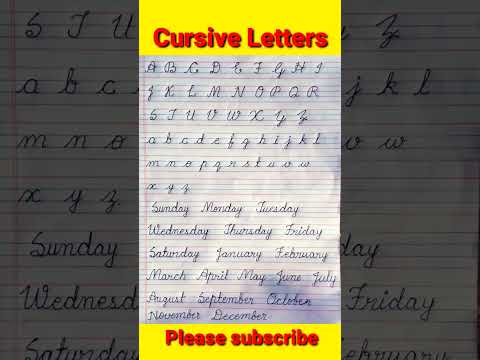 Cursive Letters
A B C D E F G H I
J K L M N O P Q R
S T U V W X Y Z
a b c d e f g h i j k l
m n o p q r s t u v w
x y z
Sunday Monday Tuesday
Wednesday Thursday Friday
Saturday January February
March April May June July
August September October
November December
Please subscribe